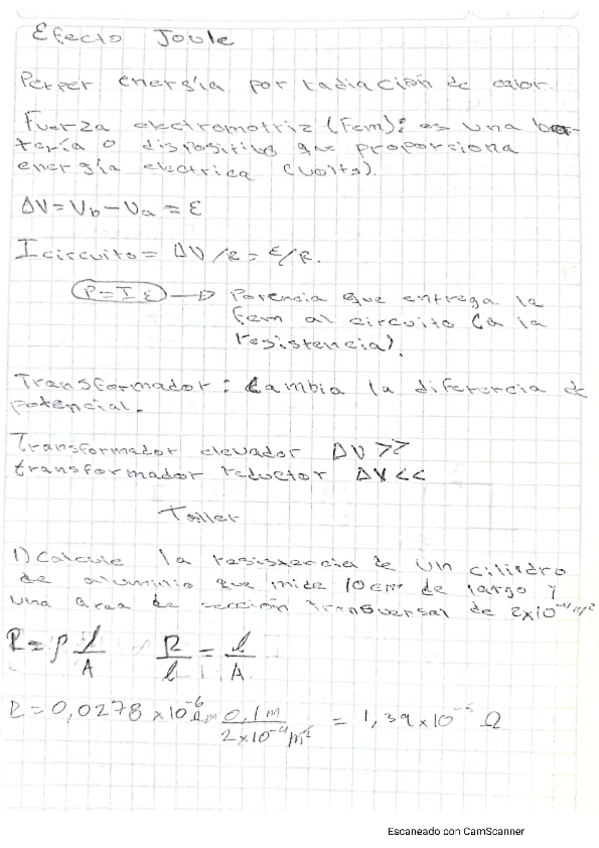 Efecto Joule
Perder energía por radiación de calor.
Fuerza electromotriz (Fem): es una ba-
tería o dispositivo que proporciona
energía electrica (volts).
ΔV = Vb - Va = ε
I circuito = ΔV/R = ε/R.
P = I ε → Potencia que entrega la
fem al circuito (a la
resistencia).
Transformador: Cambia la diferencia de
potencial.
Transformador elevador ΔV >>
transformador reductor ΔV <<
Taller
1) Calcule la resistencia de un cilindro
de aluminio que mide 10 cm de largo y
una area de sección transversal de 2x10⁻⁴ m²
R = ρ l/A R/l = l/A
R = 0,0278 x 10⁻⁶ Ω m 0,1 m / 2x10⁻⁴ m² = 1,39 x 10⁻⁵ Ω
Escaneado con CamScanner